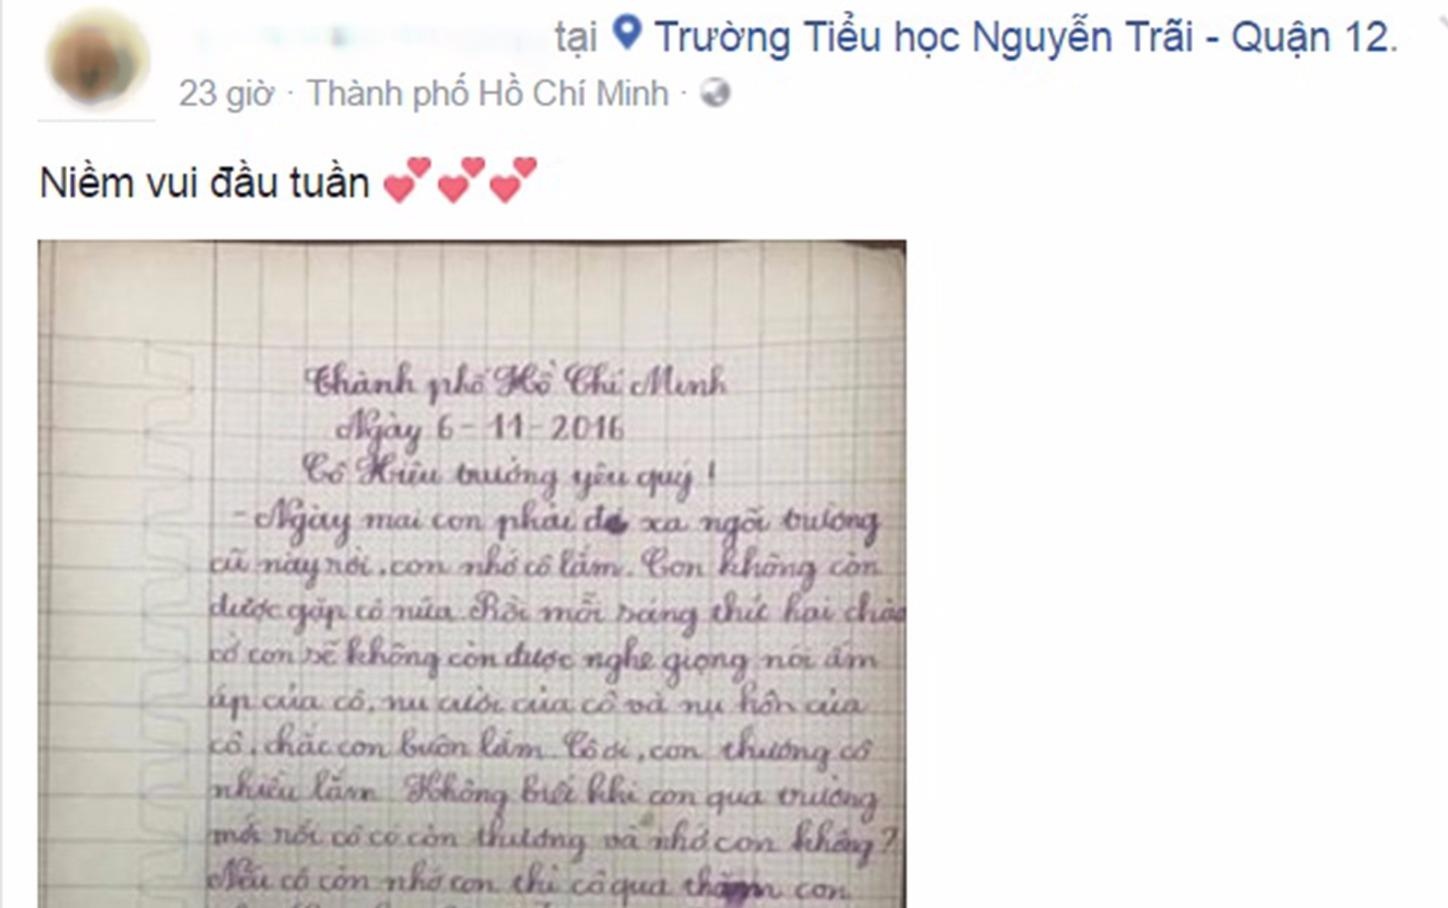 tại Trường Tiểu học Nguyễn Trãi - Quận 12.
23 giờ · Thành phố Hồ Chí Minh ·
Niềm vui đầu tuần 💕💕💕
Thành phố Hồ Chí Minh
Ngày 6-11-2016
Cô Hiệu trưởng yêu quý!
- Ngày mai con phải để xa ngôi trường
cũ này rồi, con nhớ cô lắm. Con không còn
được gặp cô nữa. Rồi mỗi sáng thứ hai chào
cờ con sẽ không còn được nghe giọng nói ấm
áp của cô, nụ cười của cô và nụ hôn của
cô, chắc con buồn lắm. Cô ơi, con thương cô
nhiều lắm. Không biết khi con qua trường
mới rồi cô có còn thương và nhớ con không?
Nếu cô còn nhớ con thì cô qua thăm con